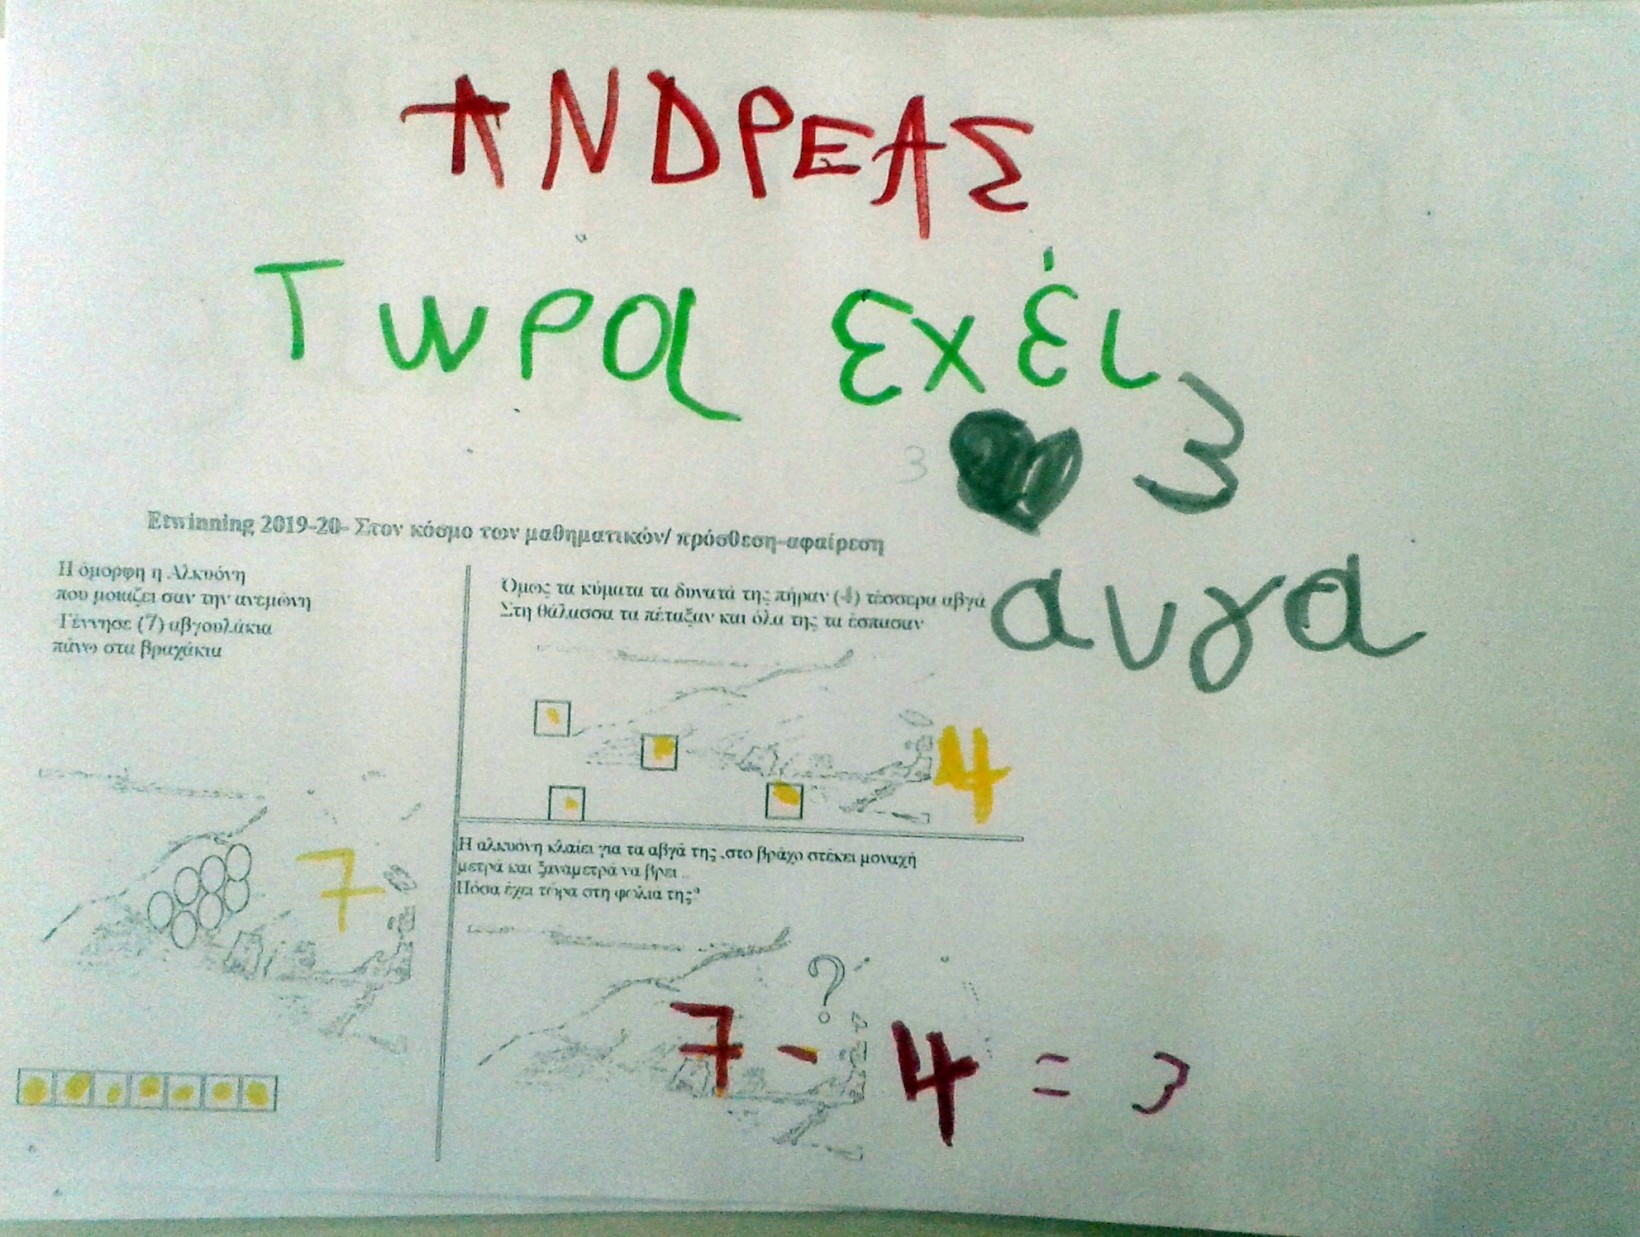 ΑΝΔΡΕΑΣ
Τωρα εχέι
3
3
αυγα
Etwinning 2019-20- Στον κόσμο των μαθηματικών/ πρόσθεση-αφαίρεση
Η όμορφη η Αλκυόνη
που μοιάζει σαν την ανεμώνη
Γέννησε (7) αβγουλάκια
πάνω στα βραχάκια
7
Όμως τα κύματα τα δυνατά της πήραν (4) τέσσερα αβγά
Στη θάλασσα τα πέταξαν και όλα της τα έσπασαν
4
Η αλκυόνη κλαίει για τα αβγά της ,στο βράχο στέκει μοναχή
μετρά και ξαναμετρά να βρει ..
Πόσα έχει τώρα στη φωλιά της;
?
7 - 4 = 3